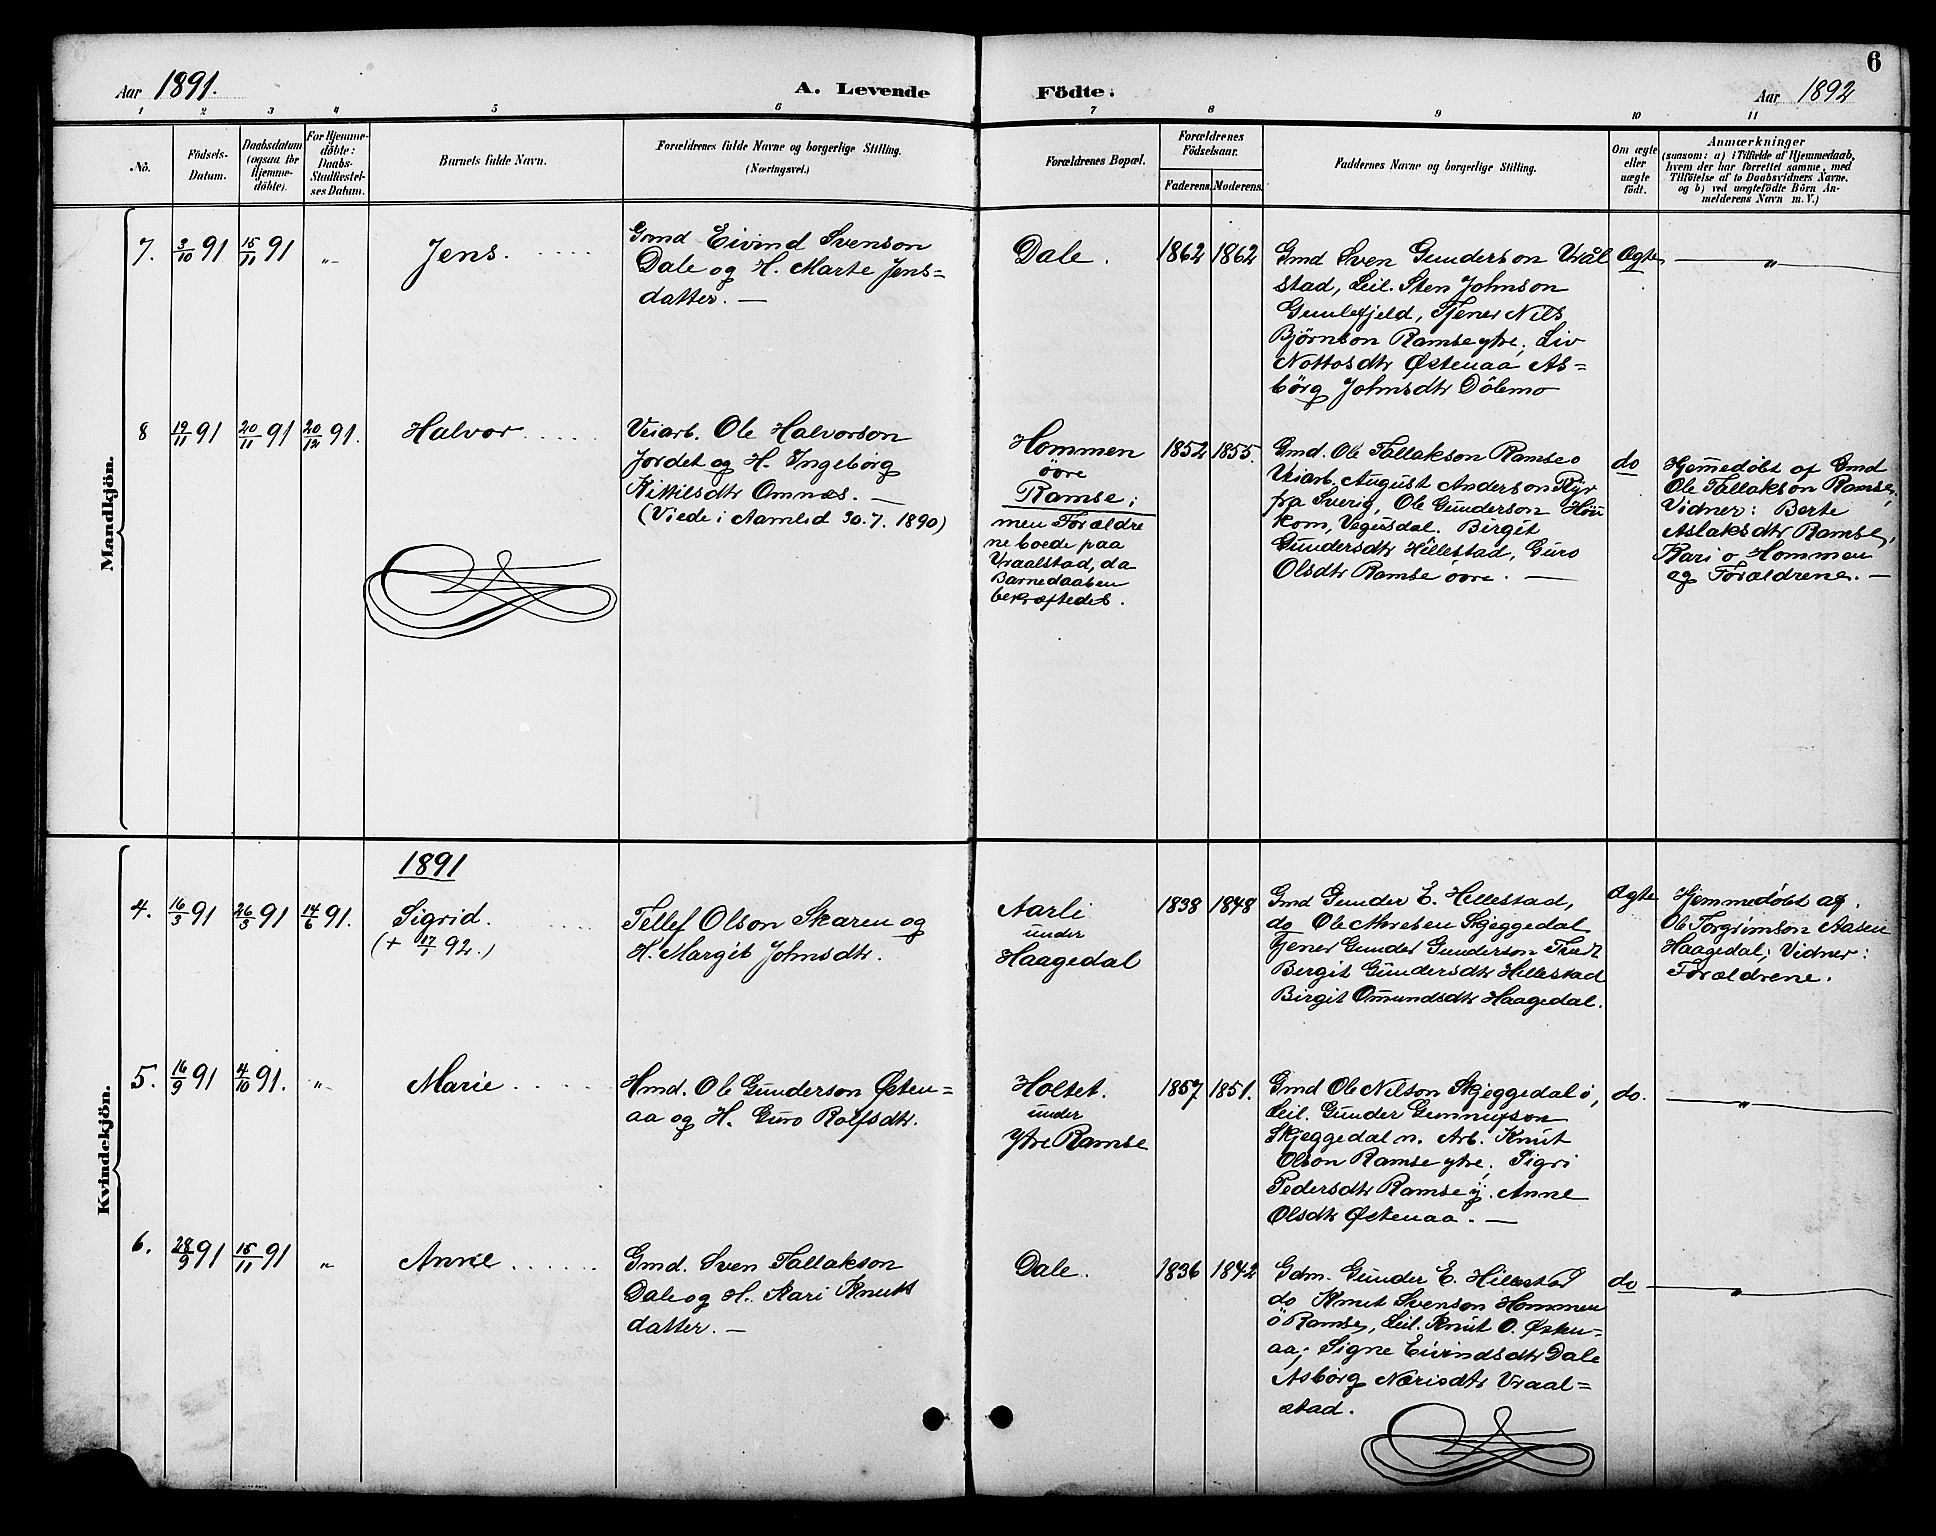 6
Aar 1891. A. Levende Födte: Aar 1892
1 2 3 4 5 6 7 8 9 10 11
No.
Födsels-
Datum.
Daabsdatum
(ogsaa for
Hjemme-
döbte).
For Hjemme-
döbte:
Daabs-
Stadfæstel-
ses Datum.
Barnets fulde Navn.
Forældrenes fulde Navne og borgerlige Stilling.
(Næringsvei.)
Forældrenes Bopæl.
Forældrenes
Födselsaar.
Faderens. Moderens.
Faddernes Navne og borgerlige Stilling.
Om ægte
eller
uægte
födt.
Anmærkninger
(saasom: a) i Tilfælde af Hjemmedaab,
hvem der har forrettet samme, med
Tilföielse af to Daabsvidners Navne.
og b) ved uægtefödte Börn An-
melderens Navn m. V.)
Mandkjön.
7. 3/10 91 15/11 91 „ Jens.
Gmd Eivind Svenson
Dale og H. Marte Jens=
datter. —
Dale. 1862 1862
Gmd Sven Gunderson Vraal
stad, Leil. Sten Johnson
Gunlefjeld, Tjener Nils
Björnson Ramse ytre, Liv
Nottosdtr Østenaa As=
börg Johnsdtr Dölemo
Ægte „
8 19/11 91 20/11 91 20/12 91. Halvor
Veiarb. Ole Halvorson
Jordet og H. Ingebörg
Kittilsdtr Omnæs. —
(Viede i Aamlid 30.7. 1890)
Hommen
övre
Ramse;
men Forældre
ne boede paa
Vraalstad, da
Barnedaaben
bekræftedes.
1852 1855.
Gmd. Ole Tallakson Ramse o
Veiarb. August Anderson Kyr
fra Sverig, Ole Gunderson Höu
kom, Vegusdal. Birgit
Gundersdtr Hillestad, Guro
Olsdtr Ramse övre. —
do
Hjemedöbt af Gmd
Ole Tallakson Ramse,
Vidner: Berte
Aslaksdtr Ramse,
Kari o Hommen
og Forældrene. —
Kvindekjön.
1891
4. 16/3 91 26/3 91 14/6 91. Sigrid.
(+ 17/7 92.)
Tellef Olson Skaren og
H. Margit Johnsdtr.
Aarli
under
Haagedal
1838 1848
Gmd Gunder E. Hillestad,
do Ole Skjeggedal
Tjener Gunder Gunderson
Bergit Gundersdtr Hillestad
Birgit Omundsdtr Haagedal.
Ægte
Hjemmedöbt af.
Ole Torgrimson Aasen
Haagedal; Vidner:
Forældrene.
5. 16/9 91 4/10 91. „ Marie
Hmd. Ole Gunderson Østen=
aa og H. Guro Rolfsdtr.
Holtet.
under
Ytre Ramse
1857 1851.
Gmd Ole Nilson Skjeggedal ö,
Leil. Gunder Gunnufson
Skjeggedal n. Arb. Knut
Olson Ramse ytre; Sigri
Pedersdtr Ramse y. Anne
Olsdtr Østenaa. —
do. „
6. 28/9 91 15/11 91 „ Anne
Gmd. Sven Tallakson
Dale og H. Kari Knuts
datter. —
Dale. 1836 1842
Gdm. Gunder E. Hillestad
do Knut Svenson Hommen
ö Ramse, Leil. Knut O. Østen=
aa; Signe Eivindsdtr Dale
Asbörg Nærisdtr Vraal=
stad.
do „